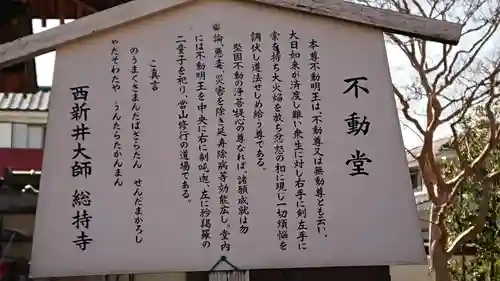 不動堂
本尊不動明王は、不動尊又は無動尊とも云い、
大日如来が済度し難い衆生に対し右手に剣左手に
索を持ち大火焔を放ち忿怒の相に現し一切煩悩を
調伏し道法せしめ給う尊である。
堅固不動の浄菩提心の尊なれば、諸願成就は勿
論、悪事、災害を除き延寿除病等功能広し。堂内
には不動明王を中央に右に制吒迦、左に矜羯羅の
二童子を祀り、當山修行の道場である。
ご真言
のうまくさまんだばさらたん せんだまかろし
やだそわたや うんたらたかんまん
西新井大師 總持寺